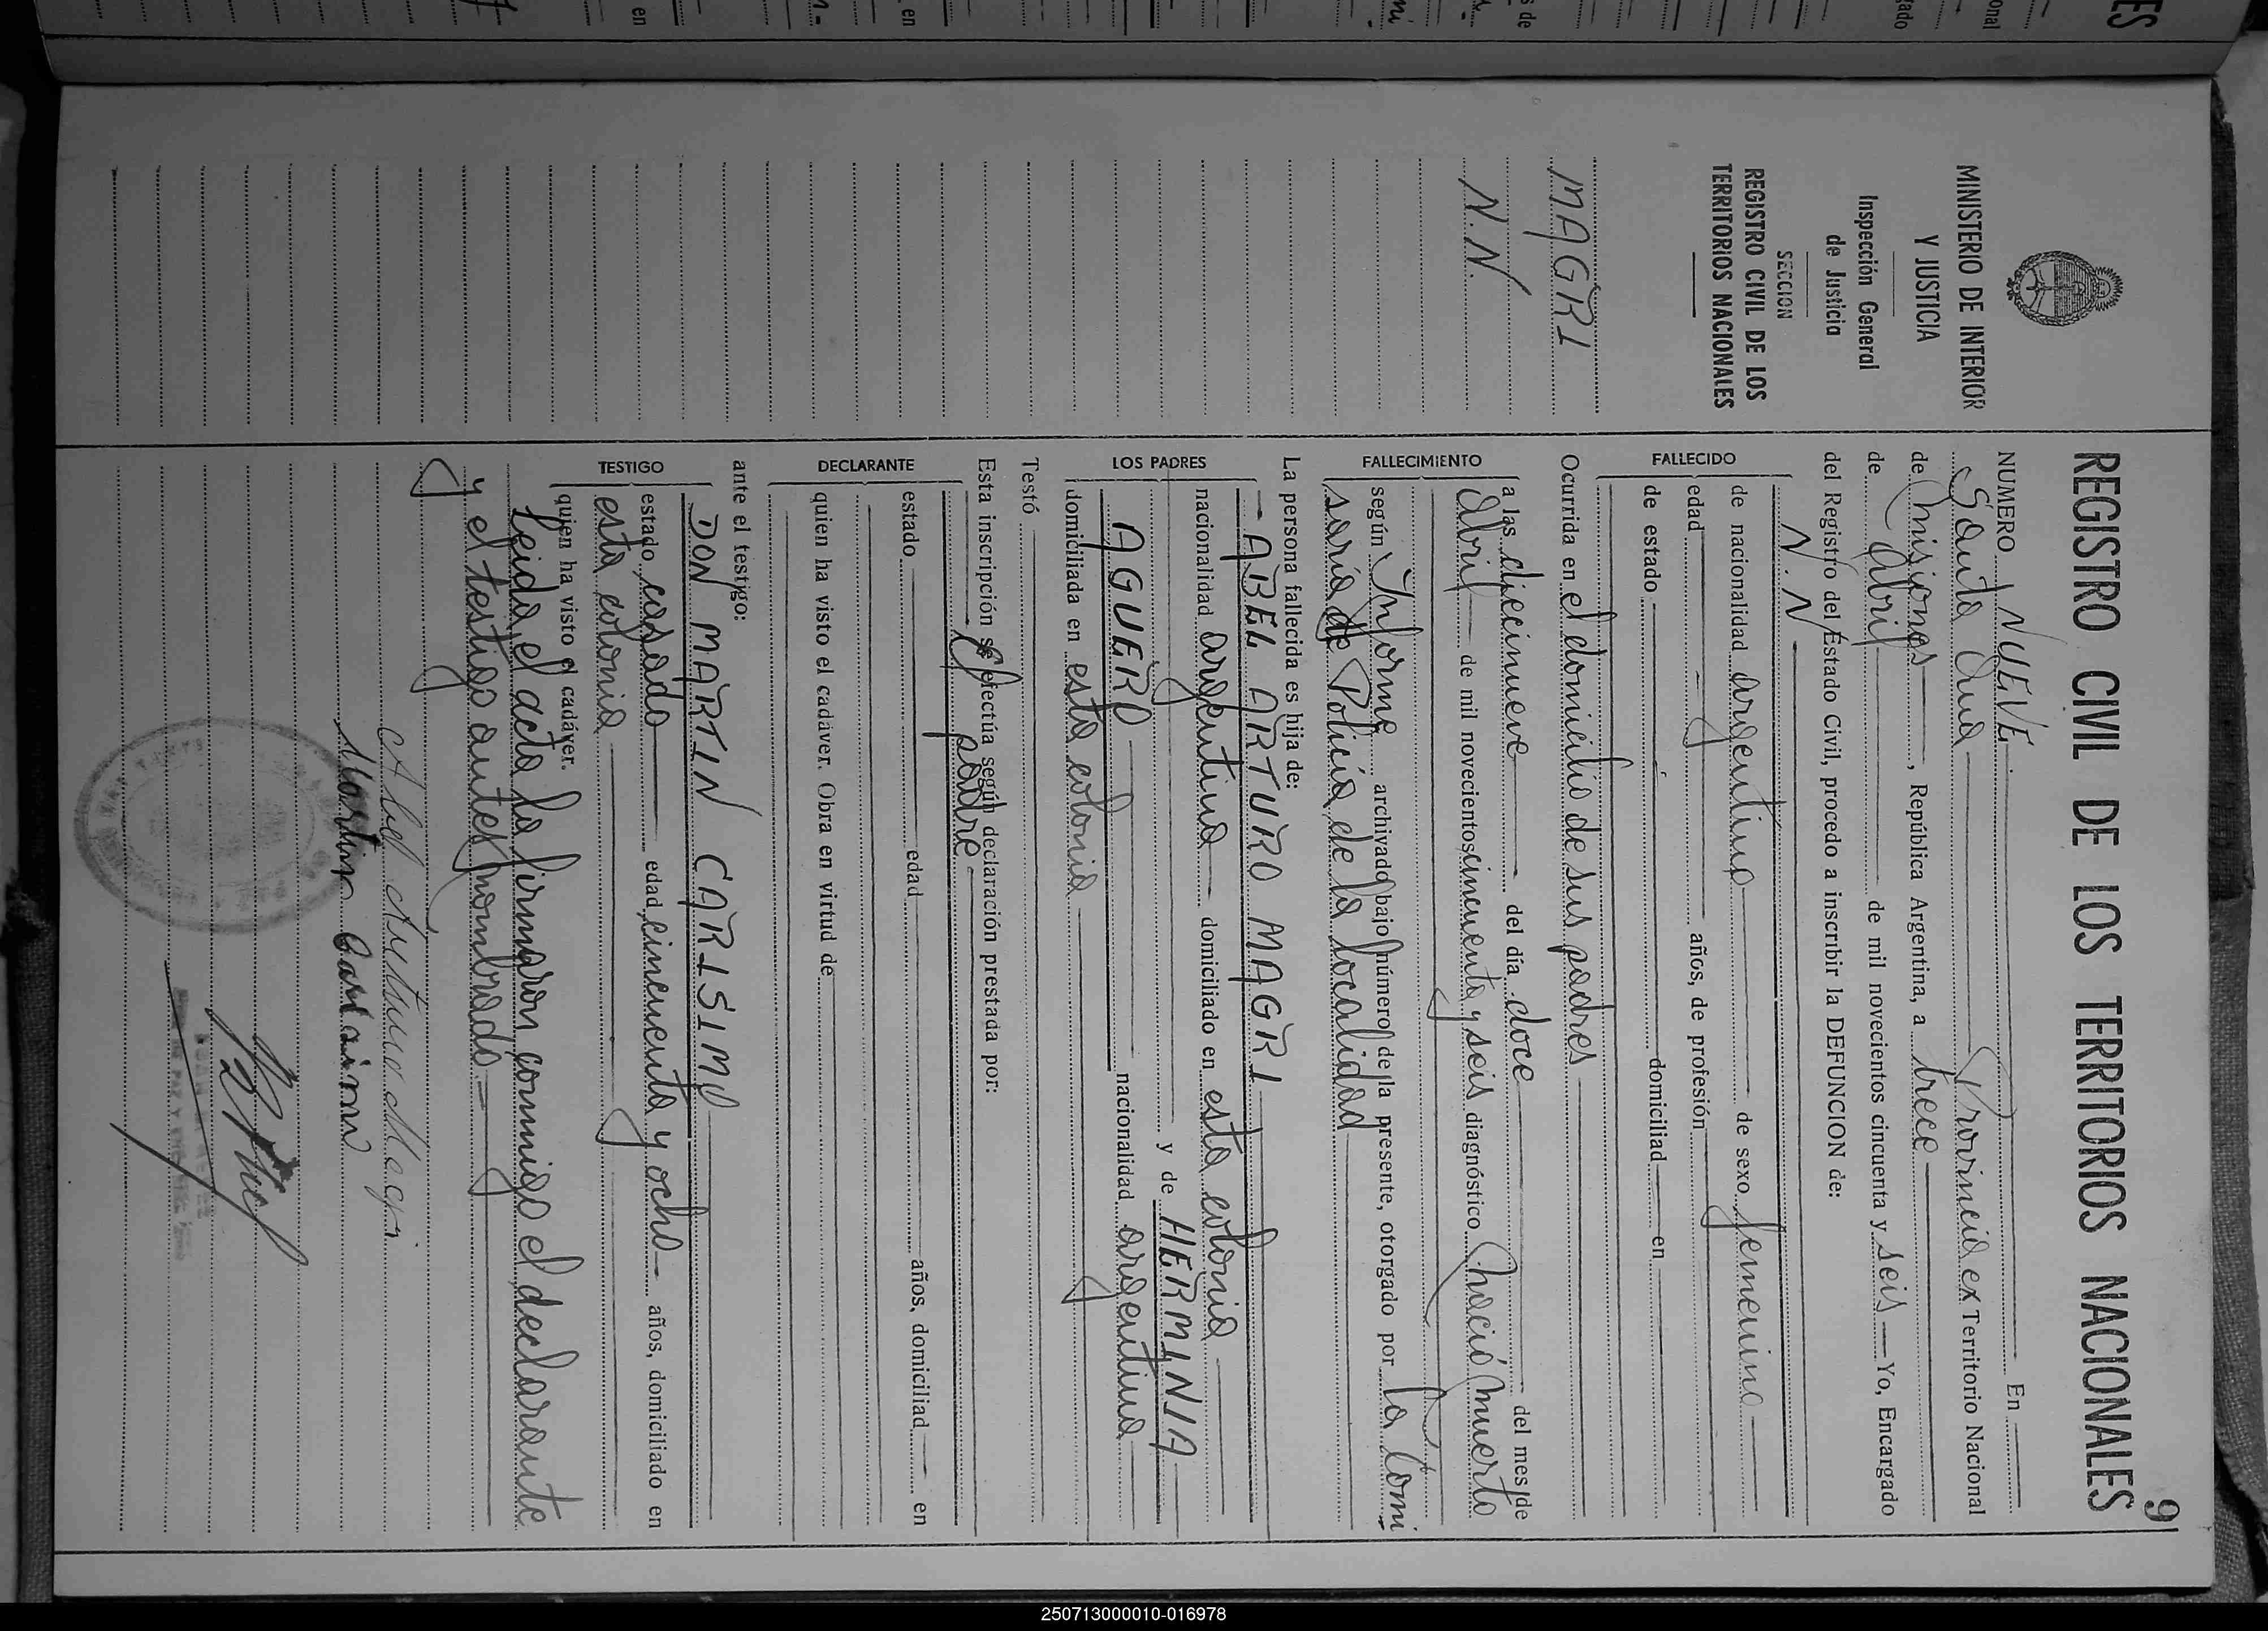 9
REGISTRO CIVIL DE LOS TERRITORIOS NACIONALES
MINISTERIO DE INTERIOR
Y JUSTICIA
Inspección General
de Justicia
SECCION
REGISTRO CIVIL DE LOS
TERRITORIOS NACIONALES
MAGRI
N.N.
NUMERO NUEVE. En
Santa Ana Provincia ex Territorio Nacional
de Misiones, República Argentina, a trece
de abril de mil novecientos cincuenta y seis Yo, Encargado
del Registro del Estado Civil, procedo a inscribir la DEFUNCION de:
FALLECIDO
N.N.
de nacionalidad argentina de sexo femenino
edad años, de profesión
de estado domiciliad en
Ocurrida en el domicilio de sus padres
FALLECIMIENTO
a las diecinueve del día doce del mes de
abril de mil novecientos cincuenta y seis diagnóstico nació muerta
según Informe archivado bajo número de la presente, otorgado por la Comi
saría de Policía de la localidad
La persona fallecida es hija de:
LOS PADRES
ABEL ARTURO MAGRI
nacionalidad argentina domiciliado en esta colonia
y de HERMINIA
AGUERO nacionalidad argentina
domiciliada en esta colonia
Testó
Esta inscripción se efectúa según declaración prestada por:
DECLARANTE
El padre
estado edad años, domiciliad en
quien ha visto el cadáver. Obra en virtud de
ante el testigo:
TESTIGO
DON MARTIN CARISIMO
estado casado edad cincuenta y ocho años, domiciliado en
esta colonia
quien ha visto el cadáver.
Leida el acta la firmaron conmigo el declarante
y el testigo antes nombrado.
Abel Arturo Magri
Martin Carisimo
250713000010-016978